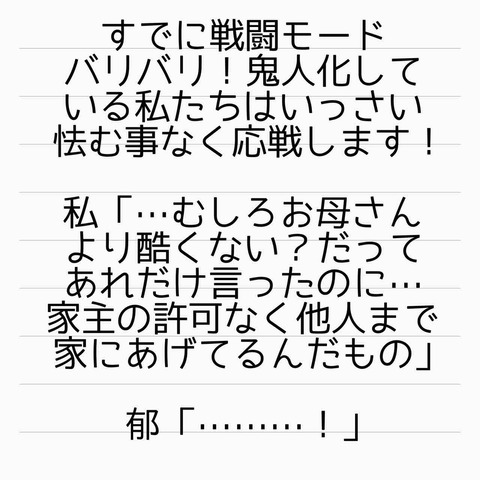 すでに戦闘モード
バリバリ！鬼人化して
いる私たちはいっさい
怯む事なく応戦します！
私「…むしろお母さん
より酷くない？だって
あれだけ言ったのに…
家主の許可なく他人まで
家にあげてるんだもの」
郁「………！」